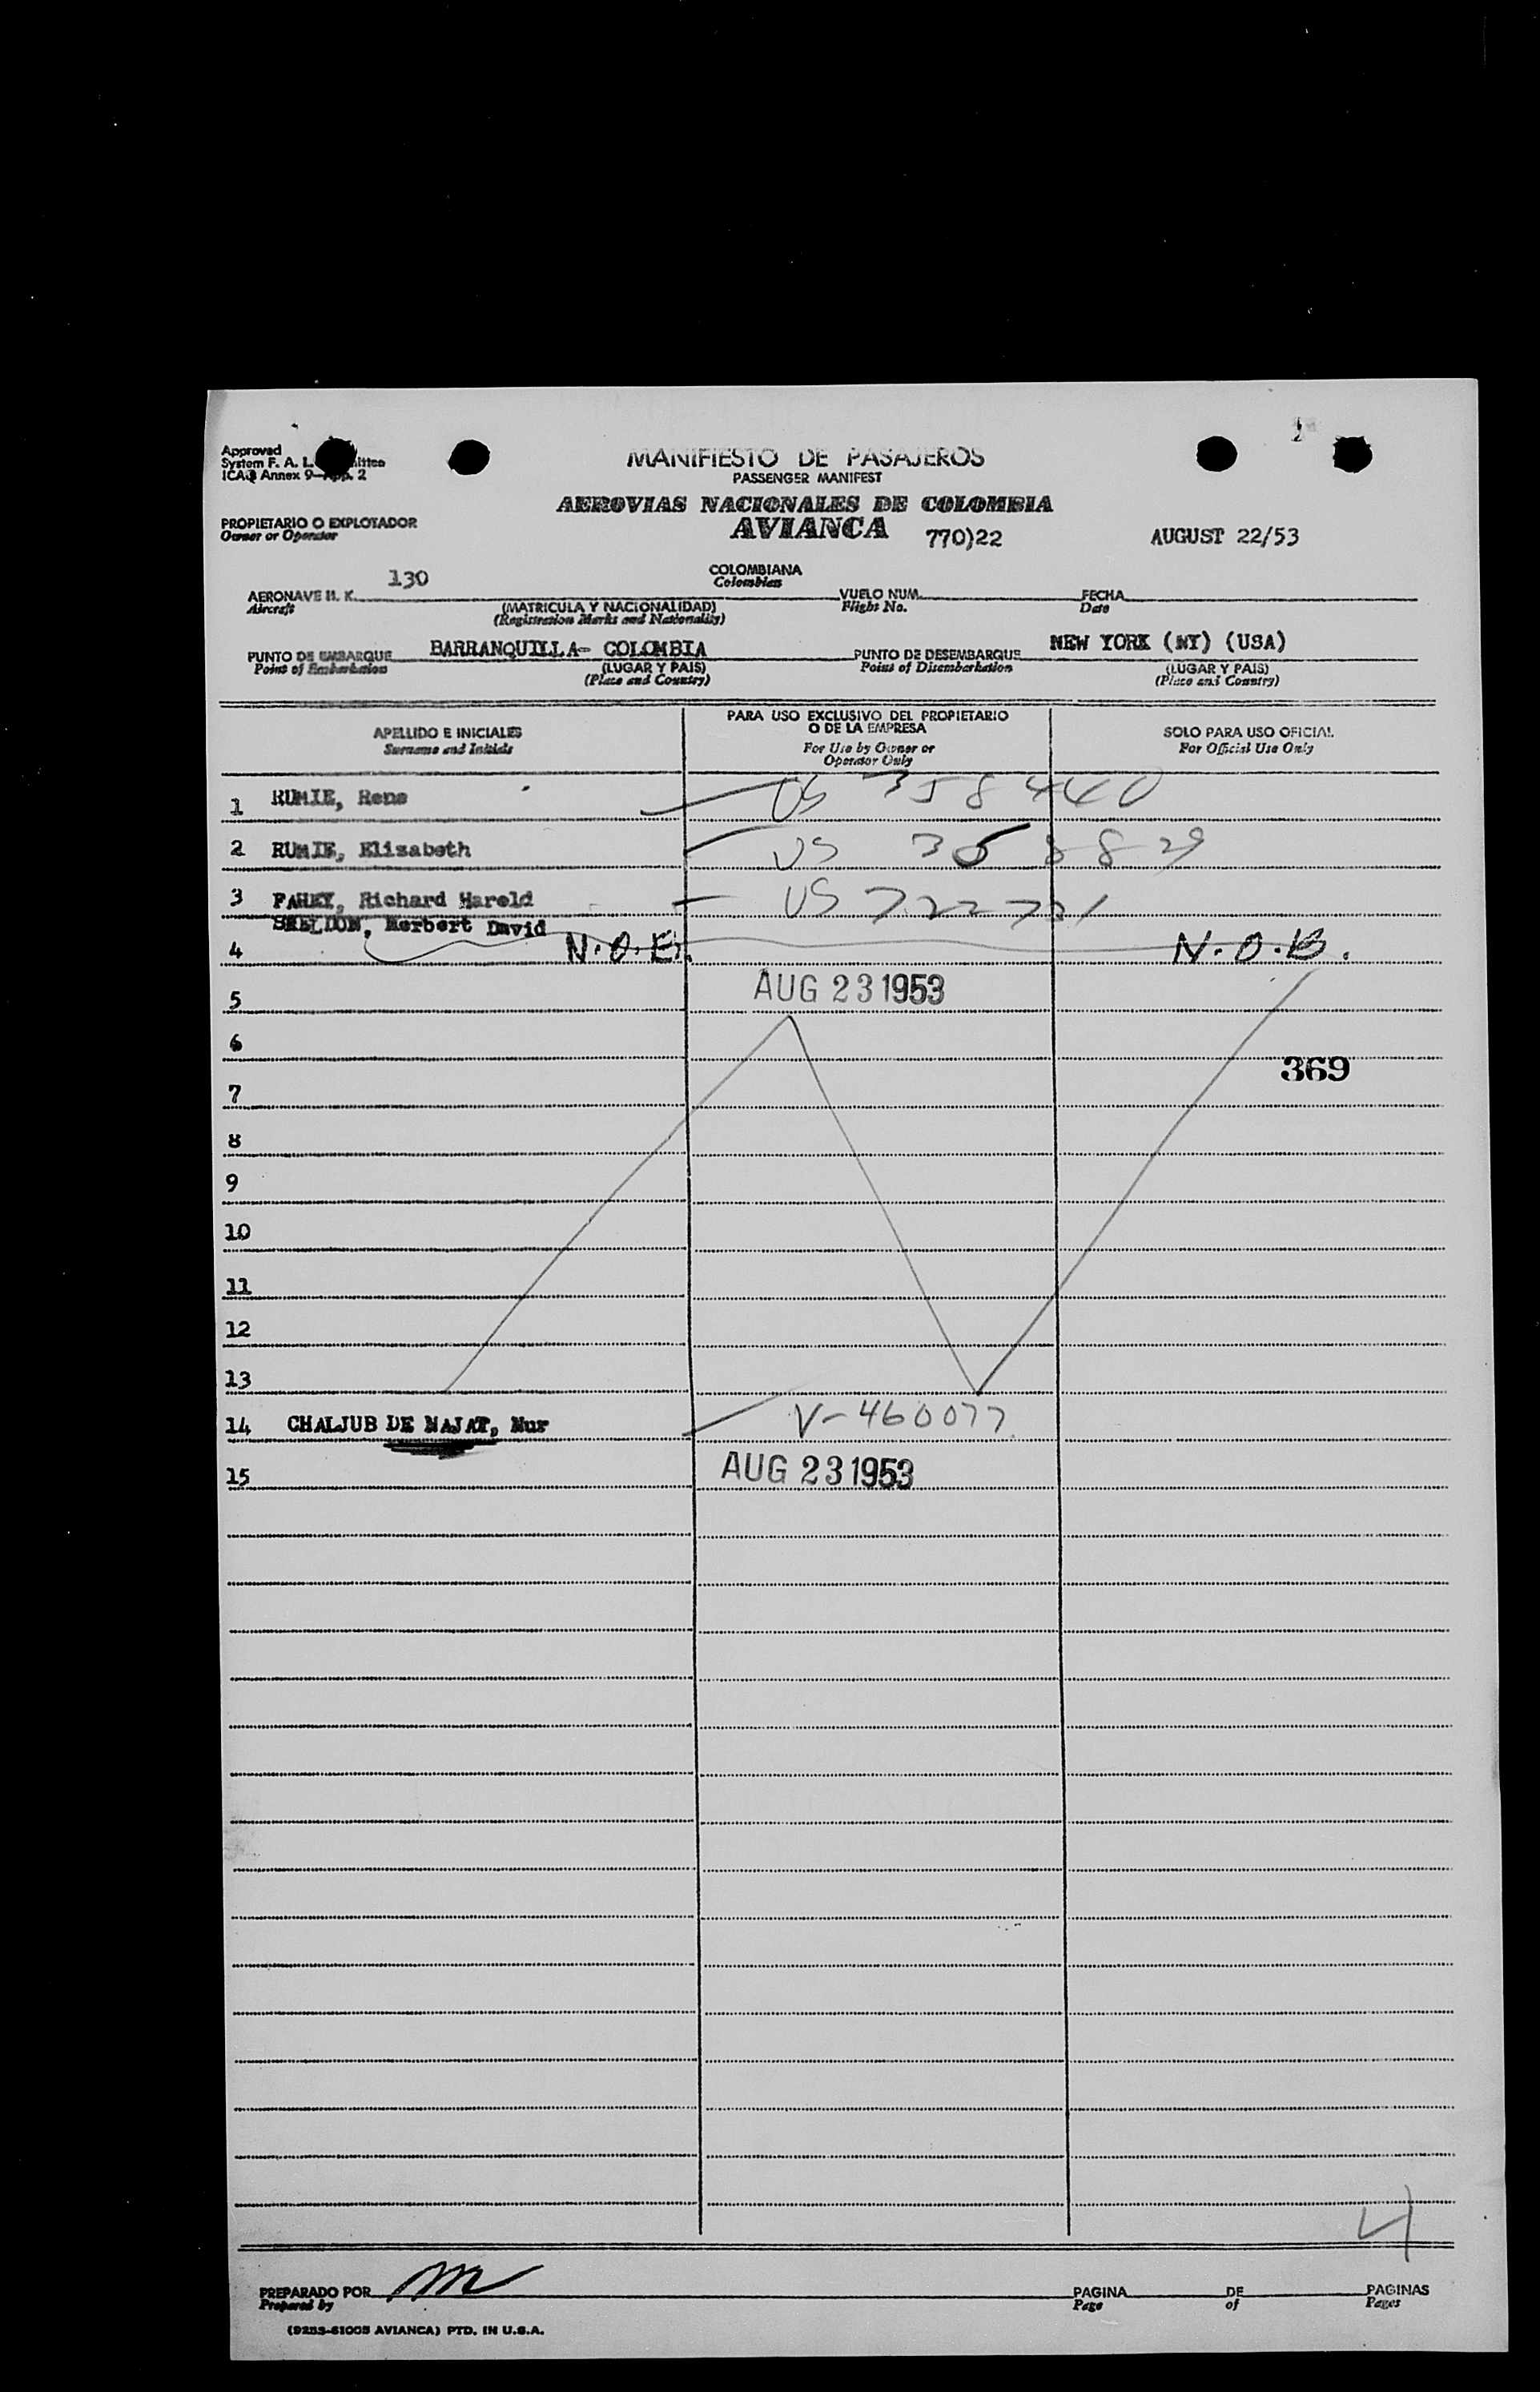 Approved
System F. A. L.
ICAO Annex 9-App. 2
MANIFIESTO DE PASAJEROS
PASSENGER MANIFEST
AEROVIAS NACIONALES DE COLOMBIA
AVIANCA 770)22
PROPIETARIO O EXPLOTADOR
Owner or Operator
AUGUST 22/53
130
COLOMBIANA
Colombian
AERONAVE H. K.
Aircraft
(MATRICULA Y NACIONALIDAD)
(Registration Marks and Nationality)
VUELO NUM.
Flight No.
FECHA
Date
PUNTO DE EMBARQUE BARRANQUILLA- COLOMBIA
Point of Embarkation
(LUGAR Y PAIS)
(Place and Country)
PUNTO DE DESEMBARQUE NEW YORK (NY) (USA)
Point of Disembarkation
(LUGAR Y PAIS)
(Place and Country)
APELLIDO E INICIALES
Surname and Initials
PARA USO EXCLUSIVO DEL PROPIETARIO
O DE LA EMPRESA
For Use by Owner or
Operator Only
SOLO PARA USO OFICIAL
For Official Use Only
1 RUMIE, Rene US 358440
2 RUMIE, Elizabeth US 358829
3 FAHEY, Richard Harold US
4 SHELDON, Herbert David N.O.B. N.O.B.
5 AUG 23 1953
6
369
7
8
9
10
11
12
13
14 CHALJUB DE NAJAT, Nur V-460077
15 AUG 23 1953
4
PREPARADO POR
Prepared by
PAGINA
Page
DE
of
PAGINAS
Pages
(9233-61005 AVIANCA) PTD. IN U.S.A.